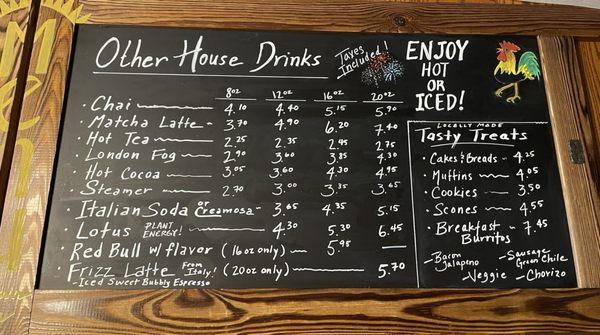 Menu
Other House Drinks
Taxes Included!
8oz 12oz 16oz 20oz
· Chai 4.10 4.40 5.15 5.90
· Matcha Latte - 3.70 4.90 6.20 7.40
· Hot Tea 2.25 2.35 2.45 2.75
· London Fog 2.90 3.60 3.85 4.30
· Hot Cocoa 3.05 3.60 4.30 4.95
· Steamer 2.70 3.00 3.35 3.65
Italian Soda or Creamosa - 3.65 4.35 5.15
· Lotus PLANT ENERGY! 4.30 5.30 6.45
· Red Bull w/ flavor (16oz only) 5.95
· Frizz Latte From Italy! (20oz only) 5.70
- Iced Sweet Bubbly Espresso
ENJOY
HOT
OR
ICED!
LOCALLY MADE
Tasty Treats
· Cakes & Breads - 4.25
· Muffins 4.05
· Cookies 3.50
· Scones 4.55
· Breakfast Burritos - 7.45
- Bacon Jalapeno
- Sausage Green Chile
- Veggie - Chorizo